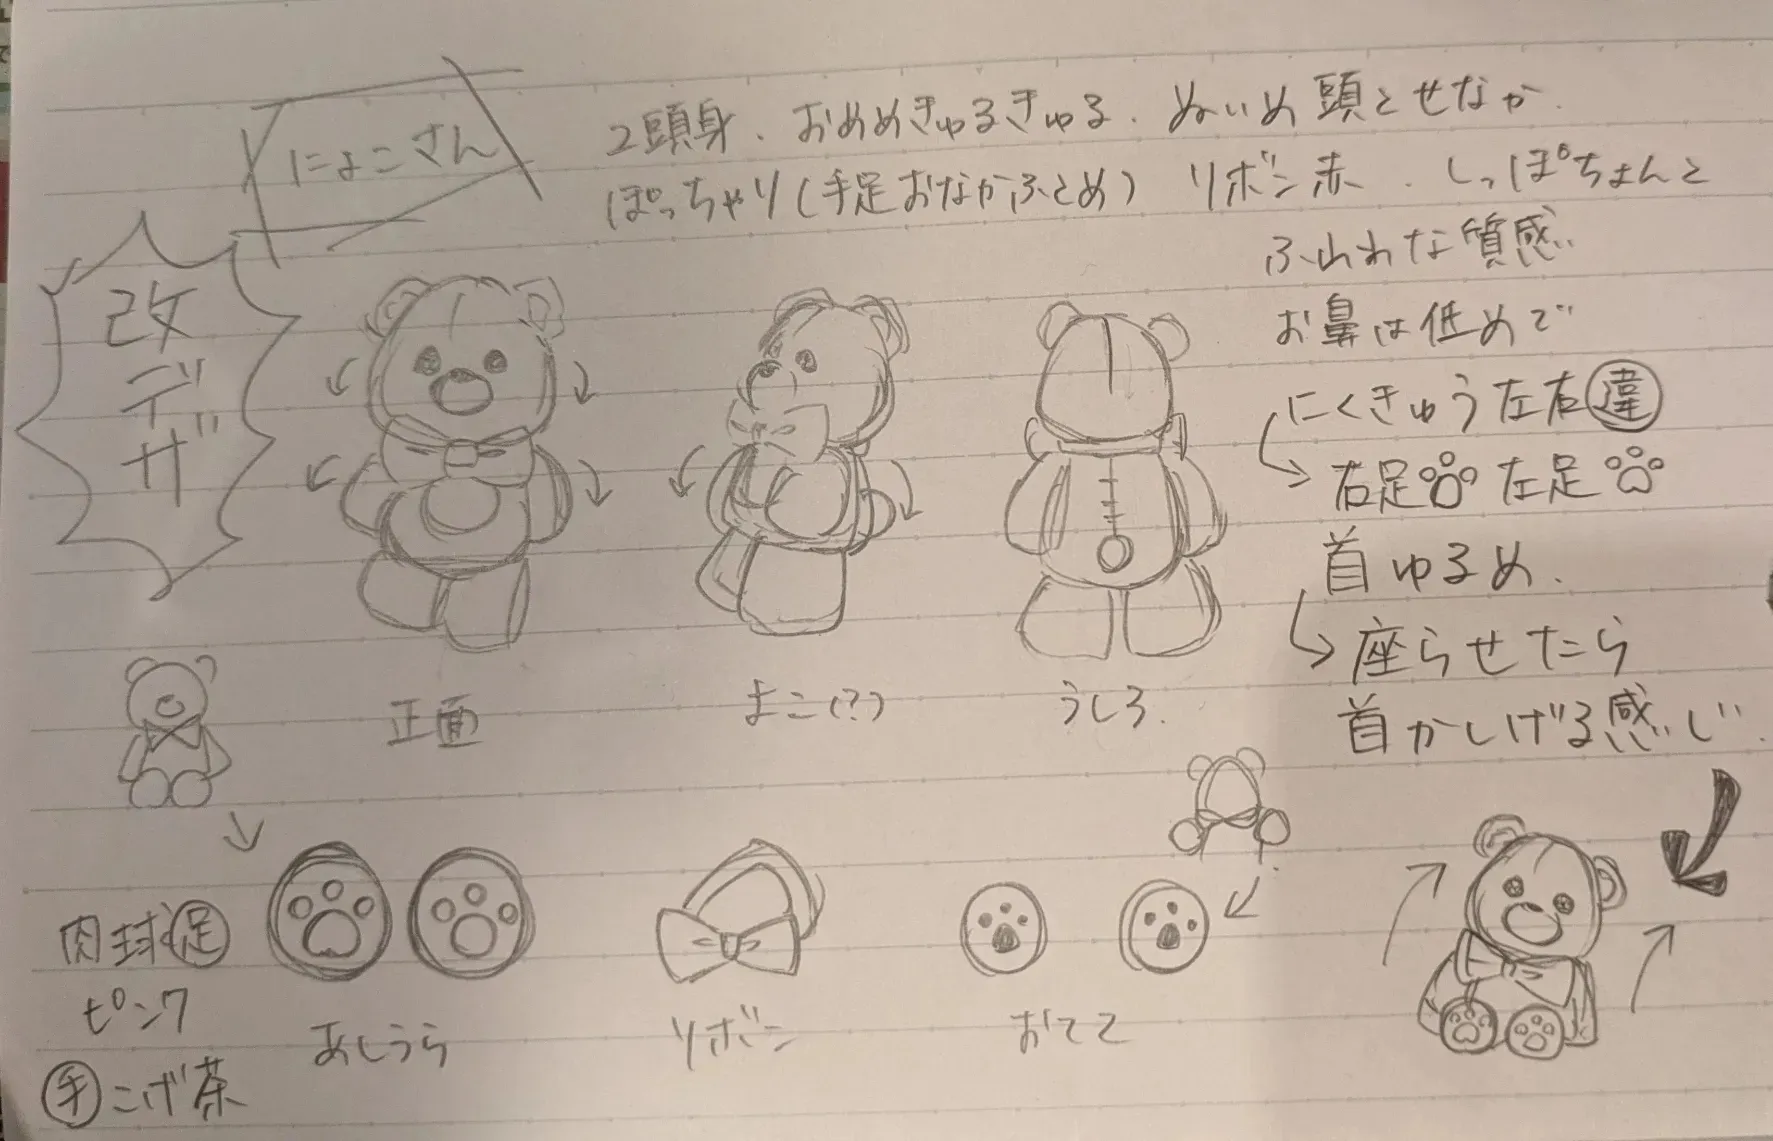 にょこさん
改デザ
2頭身．おめめきゅるきゅる．ぬいめ頭とせなか．
ぽっちゃり(手足おなかふとめ) リボン赤．しっぽちょんと
ふわふわな質感
お鼻は低めで
にくきゅう左右違
右足 左足
首ゆるめ．
座らせたら
首かしげる感じ．
正面
よこ(?)
うしろ．
肉球足
ピンク
手こげ茶
あしうら
リボン
おてて